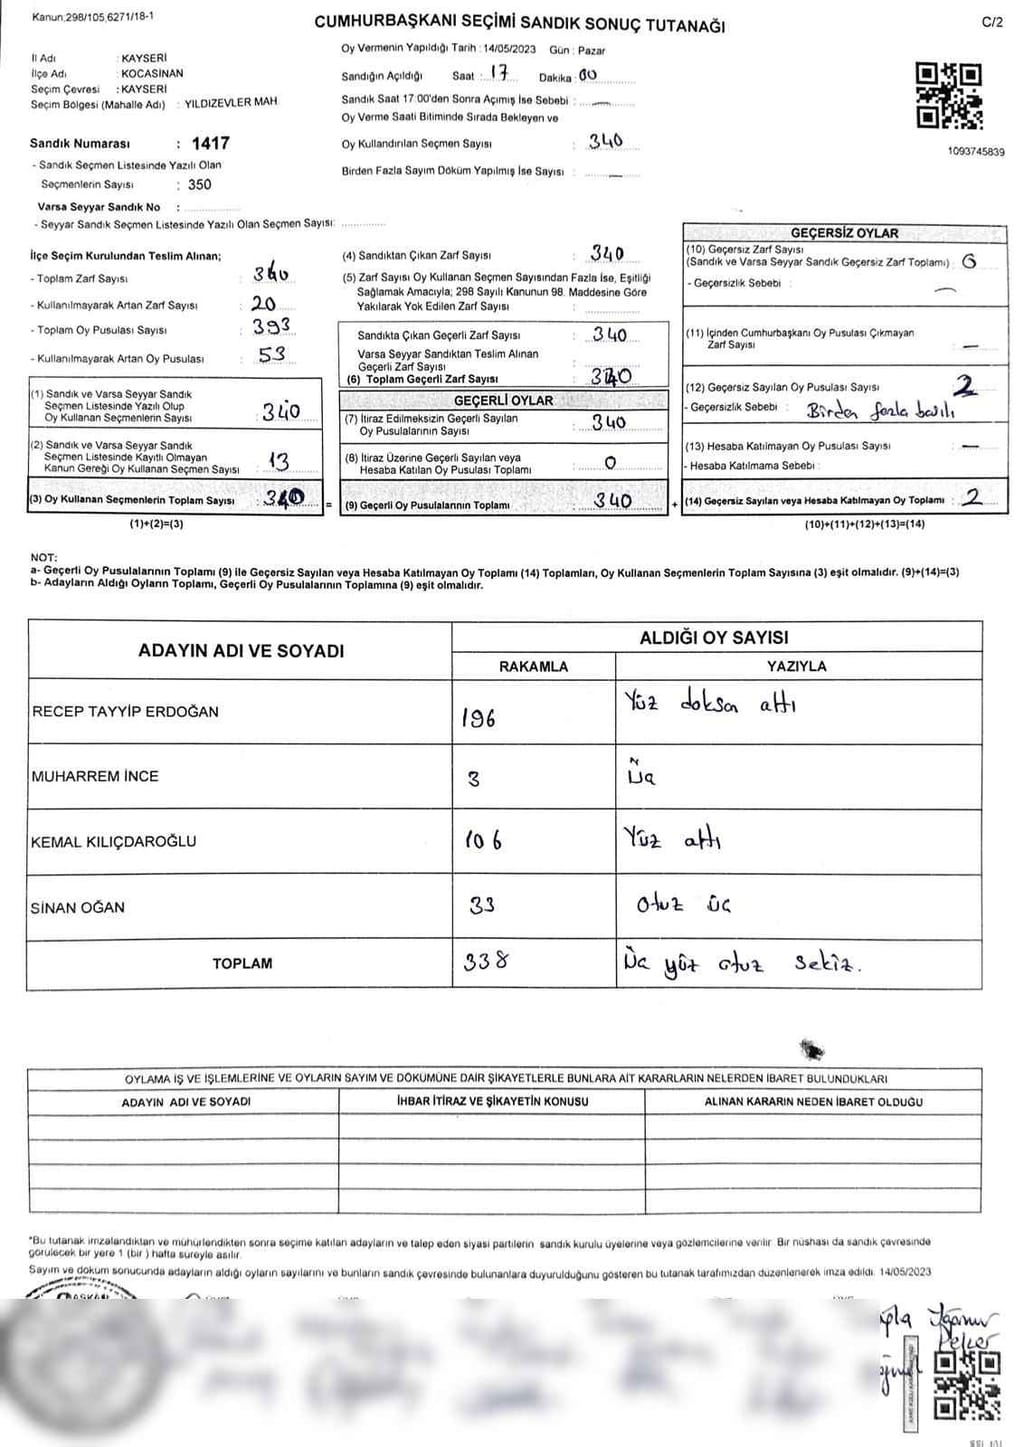 Kanun:298/105,6271/18-1
CUMHURBAŞKANI SEÇİMİ SANDIK SONUÇ TUTANAĞI
C/2
İl Adı : KAYSERİ
İlçe Adı : KOCASİNAN
Seçim Çevresi : KAYSERİ
Seçim Bölgesi (Mahalle Adı) : YILDIZEVLER MAH
Sandık Numarası : 1417
- Sandık Seçmen Listesinde Yazılı Olan
Seçmenlerin Sayısı : 350
Varsa Seyyar Sandık No :
- Seyyar Sandık Seçmen Listesinde Yazılı Olan Seçmen Sayısı:
Oy Vermenin Yapıldığı Tarih : 14/05/2023 Gün : Pazar
Sandığın Açıldığı Saat : 17 Dakika : 00
Sandık Saat 17:00'den Sonra Açımış İse Sebebi : —
Oy Verme Saati Bitiminde Sırada Bekleyen ve
Oy Kullandırılan Seçmen Sayısı : 340
Birden Fazla Sayım Döküm Yapılmış İse Sayısı : —
1093745839
İlçe Seçim Kurulundan Teslim Alınan;
- Toplam Zarf Sayısı : 360
- Kullanılmayarak Artan Zarf Sayısı : 20
- Toplam Oy Pusulası Sayısı : 393
- Kullanılmayarak Artan Oy Pusulası : 53
(1) Sandık ve Varsa Seyyar Sandık
Seçmen Listesinde Yazılı Olup
Oy Kullanan Seçmenlerin Sayısı : 340
(2) Sandık ve Varsa Seyyar Sandık
Seçmen Listesinde Kayıtlı Olmayan
Kanun Gereği Oy Kullanan Seçmen Sayısı : 13
(3) Oy Kullanan Seçmenlerin Toplam Sayısı : 340
(1)+(2)=(3)
(4) Sandıktan Çıkan Zarf Sayısı : 340
(5) Zarf Sayısı Oy Kullanan Seçmen Sayısından Fazla İse, Eşitliği
Sağlamak Amacıyla; 298 Sayılı Kanunun 98. Maddesine Göre
Yakılarak Yok Edilen Zarf Sayısı :
Sandıkta Çıkan Geçerli Zarf Sayısı : 340
Varsa Seyyar Sandıktan Teslim Alınan
Geçerli Zarf Sayısı :
(6) Toplam Geçerli Zarf Sayısı : 340
GEÇERLİ OYLAR
(7) İtiraz Edilmeksizin Geçerli Sayılan
Oy Pusulalarının Sayısı : 340
(8) İtiraz Üzerine Geçerli Sayılan veya
Hesaba Katılan Oy Pusulası Toplamı : 0
= (9) Geçerli Oy Pusulalarının Toplamı : 340 +
GEÇERSİZ OYLAR
(10) Geçersiz Zarf Sayısı
(Sandık ve Varsa Seyyar Sandık Geçersiz Zarf Toplamı) :
- Geçersizlik Sebebi : —
(11) İçinden Cumhurbaşkanı Oy Pusulası Çıkmayan
Zarf Sayısı : —
(12) Geçersiz Sayılan Oy Pusulası Sayısı : 2
- Geçersizlik Sebebi : Birden fazla basılı
(13) Hesaba Katılmayan Oy Pusulası Sayısı : —
- Hesaba Katılmama Sebebi :
(14) Geçersiz Sayılan veya Hesaba Katılmayan Oy Toplamı : 2
(10)+(11)+(12)+(13)=(14)
NOT:
a- Geçerli Oy Pusulalarının Toplamı (9) ile Geçersiz Sayılan veya Hesaba Katılmayan Oy Toplamı (14) Toplamları, Oy Kullanan Seçmenlerin Toplam Sayısına (3) eşit olmalıdır. (9)+(14)=(3)
b- Adayların Aldığı Oyların Toplamı, Geçerli Oy Pusulalarının Toplamına (9) eşit olmalıdır.
ADAYIN ADI VE SOYADI
ALDIĞI OY SAYISI
RAKAMLA YAZIYLA
RECEP TAYYİP ERDOĞAN 196 Yüz doksan altı
MUHARREM İNCE 3 Üç
KEMAL KILIÇDAROĞLU 106 Yüz altı
SİNAN OĞAN 33 Otuz üç
TOPLAM 338 Üç yüz otuz sekiz.
OYLAMA İŞ VE İŞLEMLERİNE VE OYLARIN SAYIM VE DÖKÜMÜNE DAİR ŞİKAYETLERLE BUNLARA AİT KARARLARIN NELERDEN İBARET BULUNDUKLARI
ADAYIN ADI VE SOYADI İHBAR İTİRAZ VE ŞİKAYETİN KONUSU ALINAN KARARIN NEDEN İBARET OLDUĞU
*Bu tutanak imzalandıktan ve mühürlendikten sonra seçime katılan adayların ve talep eden siyasi partilerin sandık kurulu üyelerine veya gözlemcilerine verilir. Bir nüshası da sandık çevresinde
görülecek bir yere 1 (bir) hafta süreyle asılır.
Sayım ve döküm sonucunda adayların aldığı oyların sayılarını ve bunların sandık çevresinde bulunanlara duyurulduğunu gösteren bu tutanak tarafımızdan düzenlenerek imza edildi. 14/05/2023
BAŞKAN
Yağmur
Peker